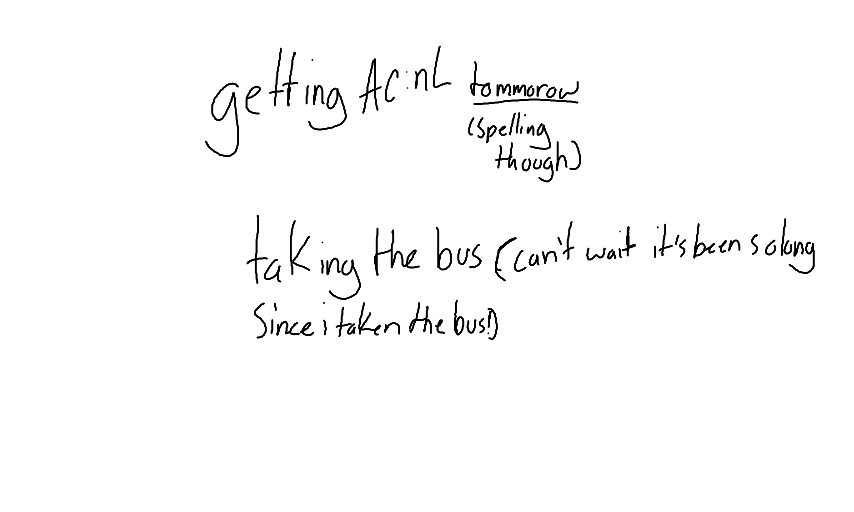 getting AC:nL tommorow
(spelling
though)
taking the bus (can't wait it's been so long
Since i taken the bus!)